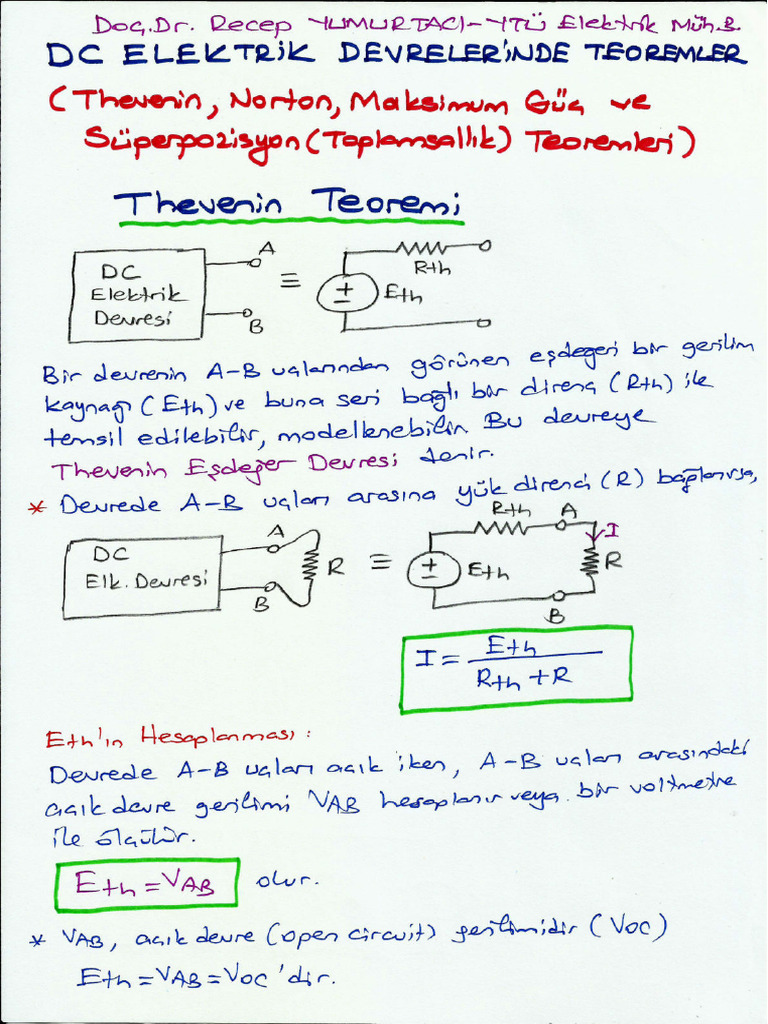 Doç.Dr. Recep YUMURTACI-YTÜ Elektrik Müh.B.
DC ELEKTRİK DEVRELERİNDE TEOREMLER
(Thevenin, Norton, Maksimum Güç ve
Süperpozisyon (Toplamsallık) Teoremleri)
Thevenin Teoremi
DC Elektrik Devresi A B ≡ + − Eth Rth
Bir devrenin A-B uçlarından görünen eşdeğeri bir gerilim
kaynağı (Eth) ve buna seri bağlı bir direnç (Rth) ile
temsil edilebilir, modellenebilir. Bu devreye
Thevenin Eşdeğer Devresi denir.
* Devrede A-B uçları arasına yük direnci (R) bağlanırsa,
DC Elk. Devresi A B R ≡ + − Eth Rth A I R B
I = Eth / Rth + R
Eth'ın Hesaplanması:
Devrede A-B uçları açık iken, A-B uçları arasındaki
açık devre gerilimi VAB hesaplanır veya bir voltmetre
ile ölçülür.
Eth = VAB olur.
* VAB, açık devre (open circuit) gerilimidir (VOC)
Eth = VAB = VOC 'dir.